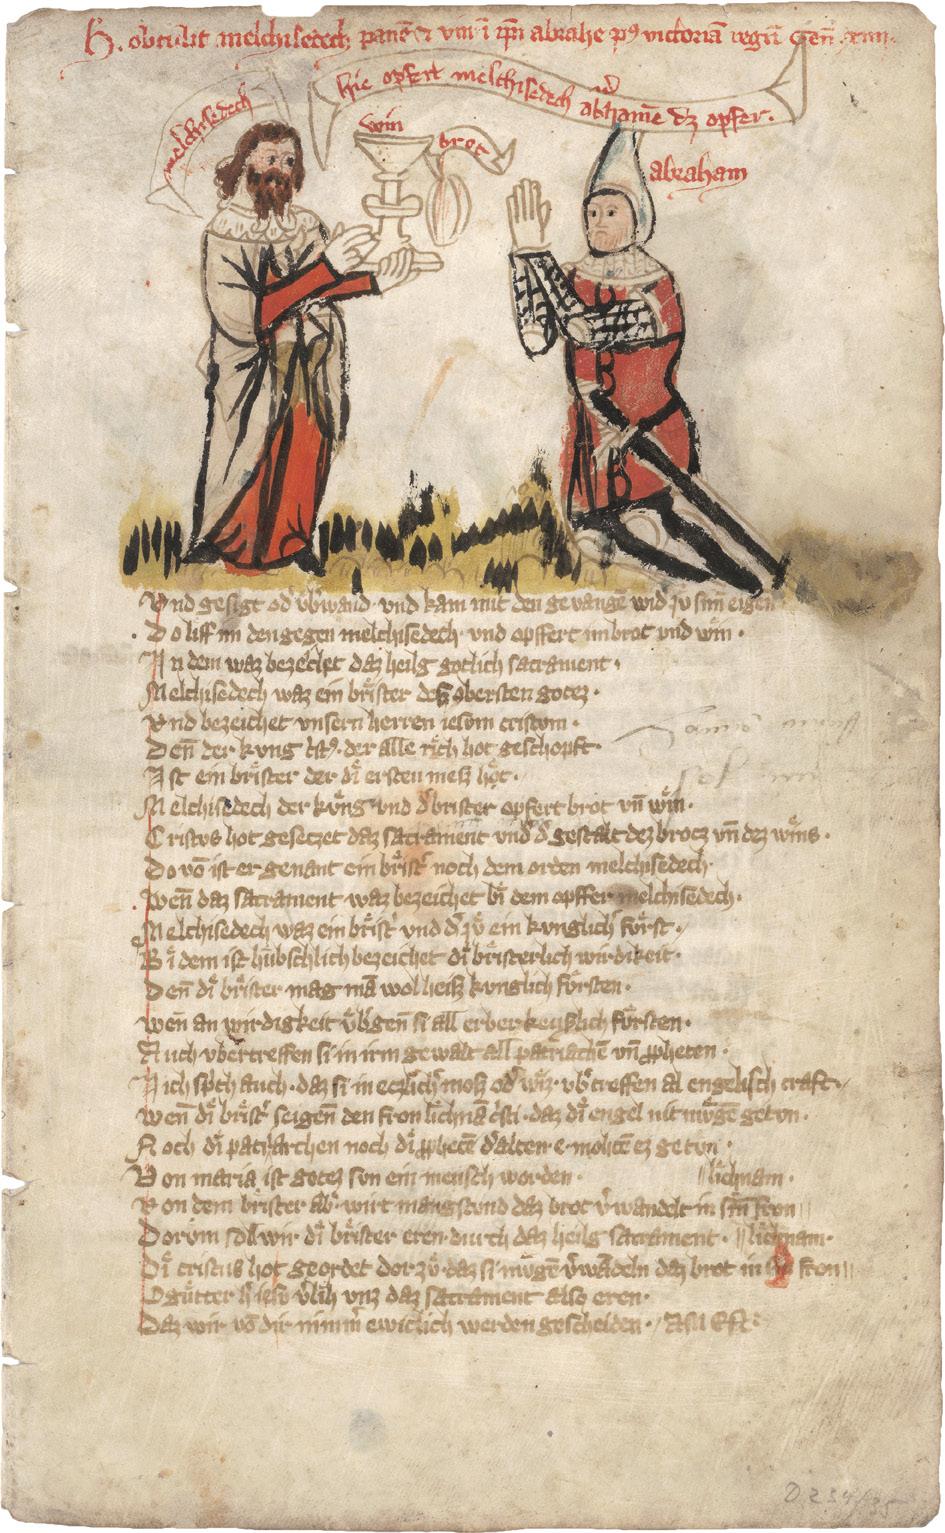 H. obtulit melchisedech panē & vin ī ip̄n abrahe p9 victoriā regū Gen̄ xiiii.
hie opfert melchisedech abhame dz opfer.
melchisedech
win
brot
abraham
Vnd gesigt od vb'wand · vnd kam mit den gevangē wid zu sim eigen
Do liff im den gegen melchisedech · vnd opffert im brot vnd win ·
In dem waz bezeichet daz heilg gotlich sacrament ·
Melchisedech waz ein brister dez obersten gotez ·
Vnd bezeichet vnsern herren iesom cristom ·
Den̄ der kvng · der alle rich hot geschopft ·
Ist ein brister der di ersten mess hot ·
Melchisedech der kvng vnd d' brister opfert brot vn̄ win ·
Cristvs hot gesetzet daz sacrament vnd' d' gestalt dez brocz vn̄ dez wins ·
Do vō ist er genant ein brist' noch dem orden melchisedech ·
Wen̄ daz sacrament waz bezeichet bi dem opffer melchisedech ·
Melchisedech waz ein brist' vnd d' zv ein kvnglich' forst ·
Bi dem ist hubschlich bezeichet di bristerlich wirdikeit ·
Den̄ di brister mag mā wol heiss kvnglich forsten ·
Wen̄ an wirdigkeit vb'gen̄ si all erber keyslich forsten ·
Auch vbertreffen si in irm gewalt all patriachē vn̄ ppheten ·
Ich sp'ch auch · daz si in eczlich' moss od' wiz · vb'treffen al engelisch craft ·
Wen̄ di brist' seigen̄ den fron lichnā c'sti · daz di engel nit mvgē getvn ·
Noch di patriarchen noch di pphetē d' alten · e · mohtē ez getvn ·
Von maria ist gotez svn ein mensch worden ·
Von dem brister ab' wirt mangstvnd daz brot v'wandelt in sin fron || lichnam ·
Dorvm soll wir di brister eren · durch daz heilg sacrament ·
Di cristus hot geordet dor zv · daz si mvgē v'wādeln daz brot in fron || lichnam ·
O gutter iesu v'lih vnz daz sacrament also eren ·
Daz wir vō dir nimm' ewiclich werden gescheiden ·
D 234/35